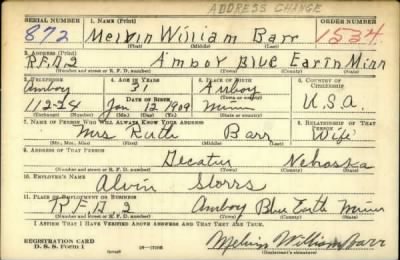 ADDRESS CHANGE
SERIAL NUMBER 1. NAME (Print) ORDER NUMBER
872 Melvin William Barr 1534
(First) (Middle) (Last)
2. ADDRESS (Print)
R.F.D. 2 Amboy Blue Earth Minn
(Number and street or R. F. D. number) (Town) (County) (State)
3. TELEPHONE 4. AGE IN YEARS 5. PLACE OF BIRTH 6. COUNTRY OF CITIZENSHIP
Amboy 31 Amboy
DATE OF BIRTH (Town or county)
112-24 Jan 12 1909 Minn U.S.A.
(Exchange) (Number) (Mo.) (Day) (Yr.) (State or country)
7. NAME OF PERSON WHO WILL ALWAYS KNOW YOUR ADDRESS 8. RELATIONSHIP OF THAT PERSON
Mrs Ruth Barr Wife
(Mr., Mrs., Miss) (First) (Middle) (Last)
9. ADDRESS OF THAT PERSON
Decatur Nebraska
(Number and street or R. F. D. number) (Town) (County) (State)
10. EMPLOYER'S NAME
Alvin Storrs
11. PLACE OF EMPLOYMENT OR BUSINESS
R.F.D. 2 Amboy Blue Earth Minn
(Number and street or R. F. D. number) (Town) (County) (State)
I AFFIRM THAT I HAVE VERIFIED ABOVE ANSWERS AND THAT THEY ARE TRUE.
REGISTRATION CARD
D. S. S. Form 1
Melvin William Barr
(Registrant's signature)